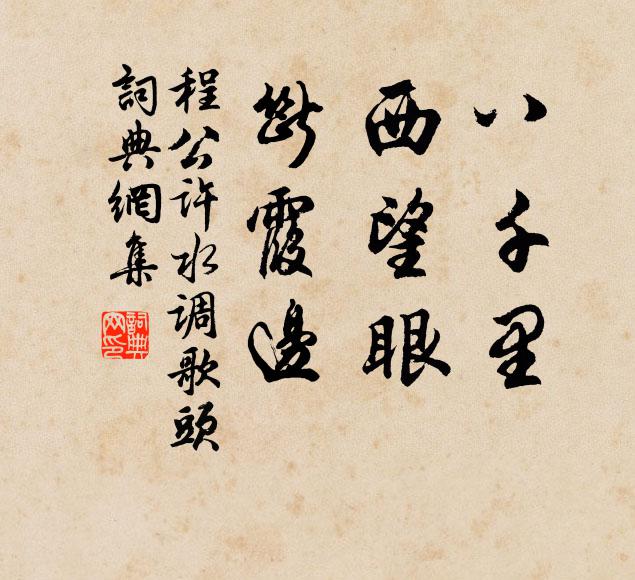 八千里
西望眼
斷霞邊
程公許水调歌頭
詞典網集
詞典
网印